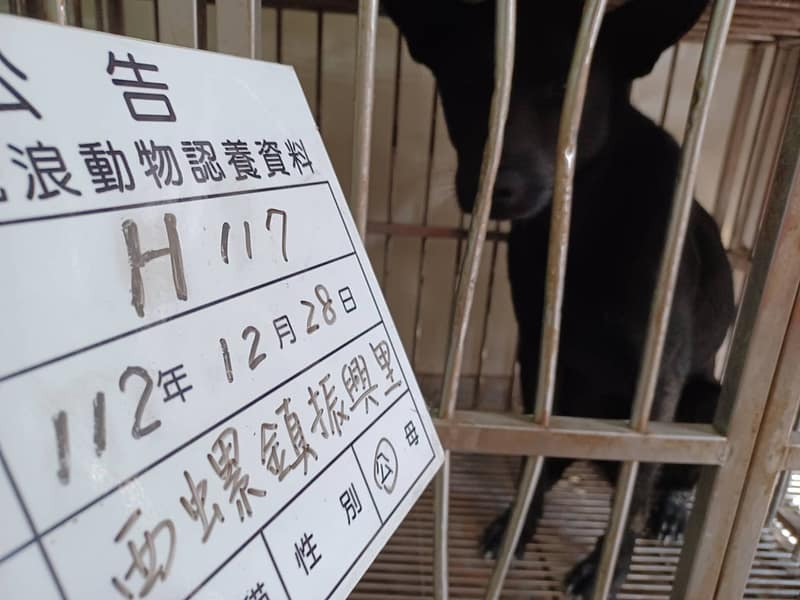 公告
浪動物認養資料
H 117
112年 12月28日
西螺鎮振興里
性別 公 母